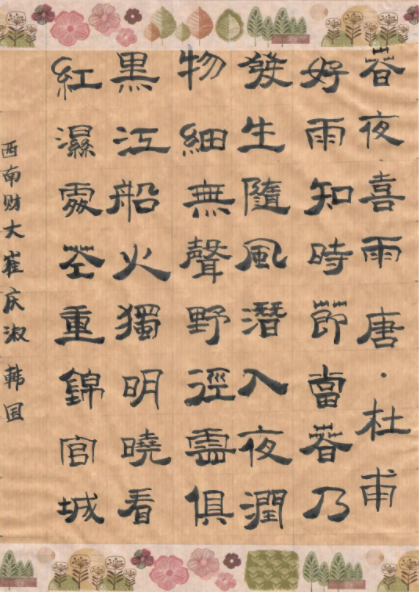 春夜·喜雨唐·杜甫
好雨知時節當春乃
發生隨風潛入夜潤
物細無聲野徑雲俱
黑江船火獨明曉看
紅濕處花重錦官城
西南财大崔庆淑 韩国